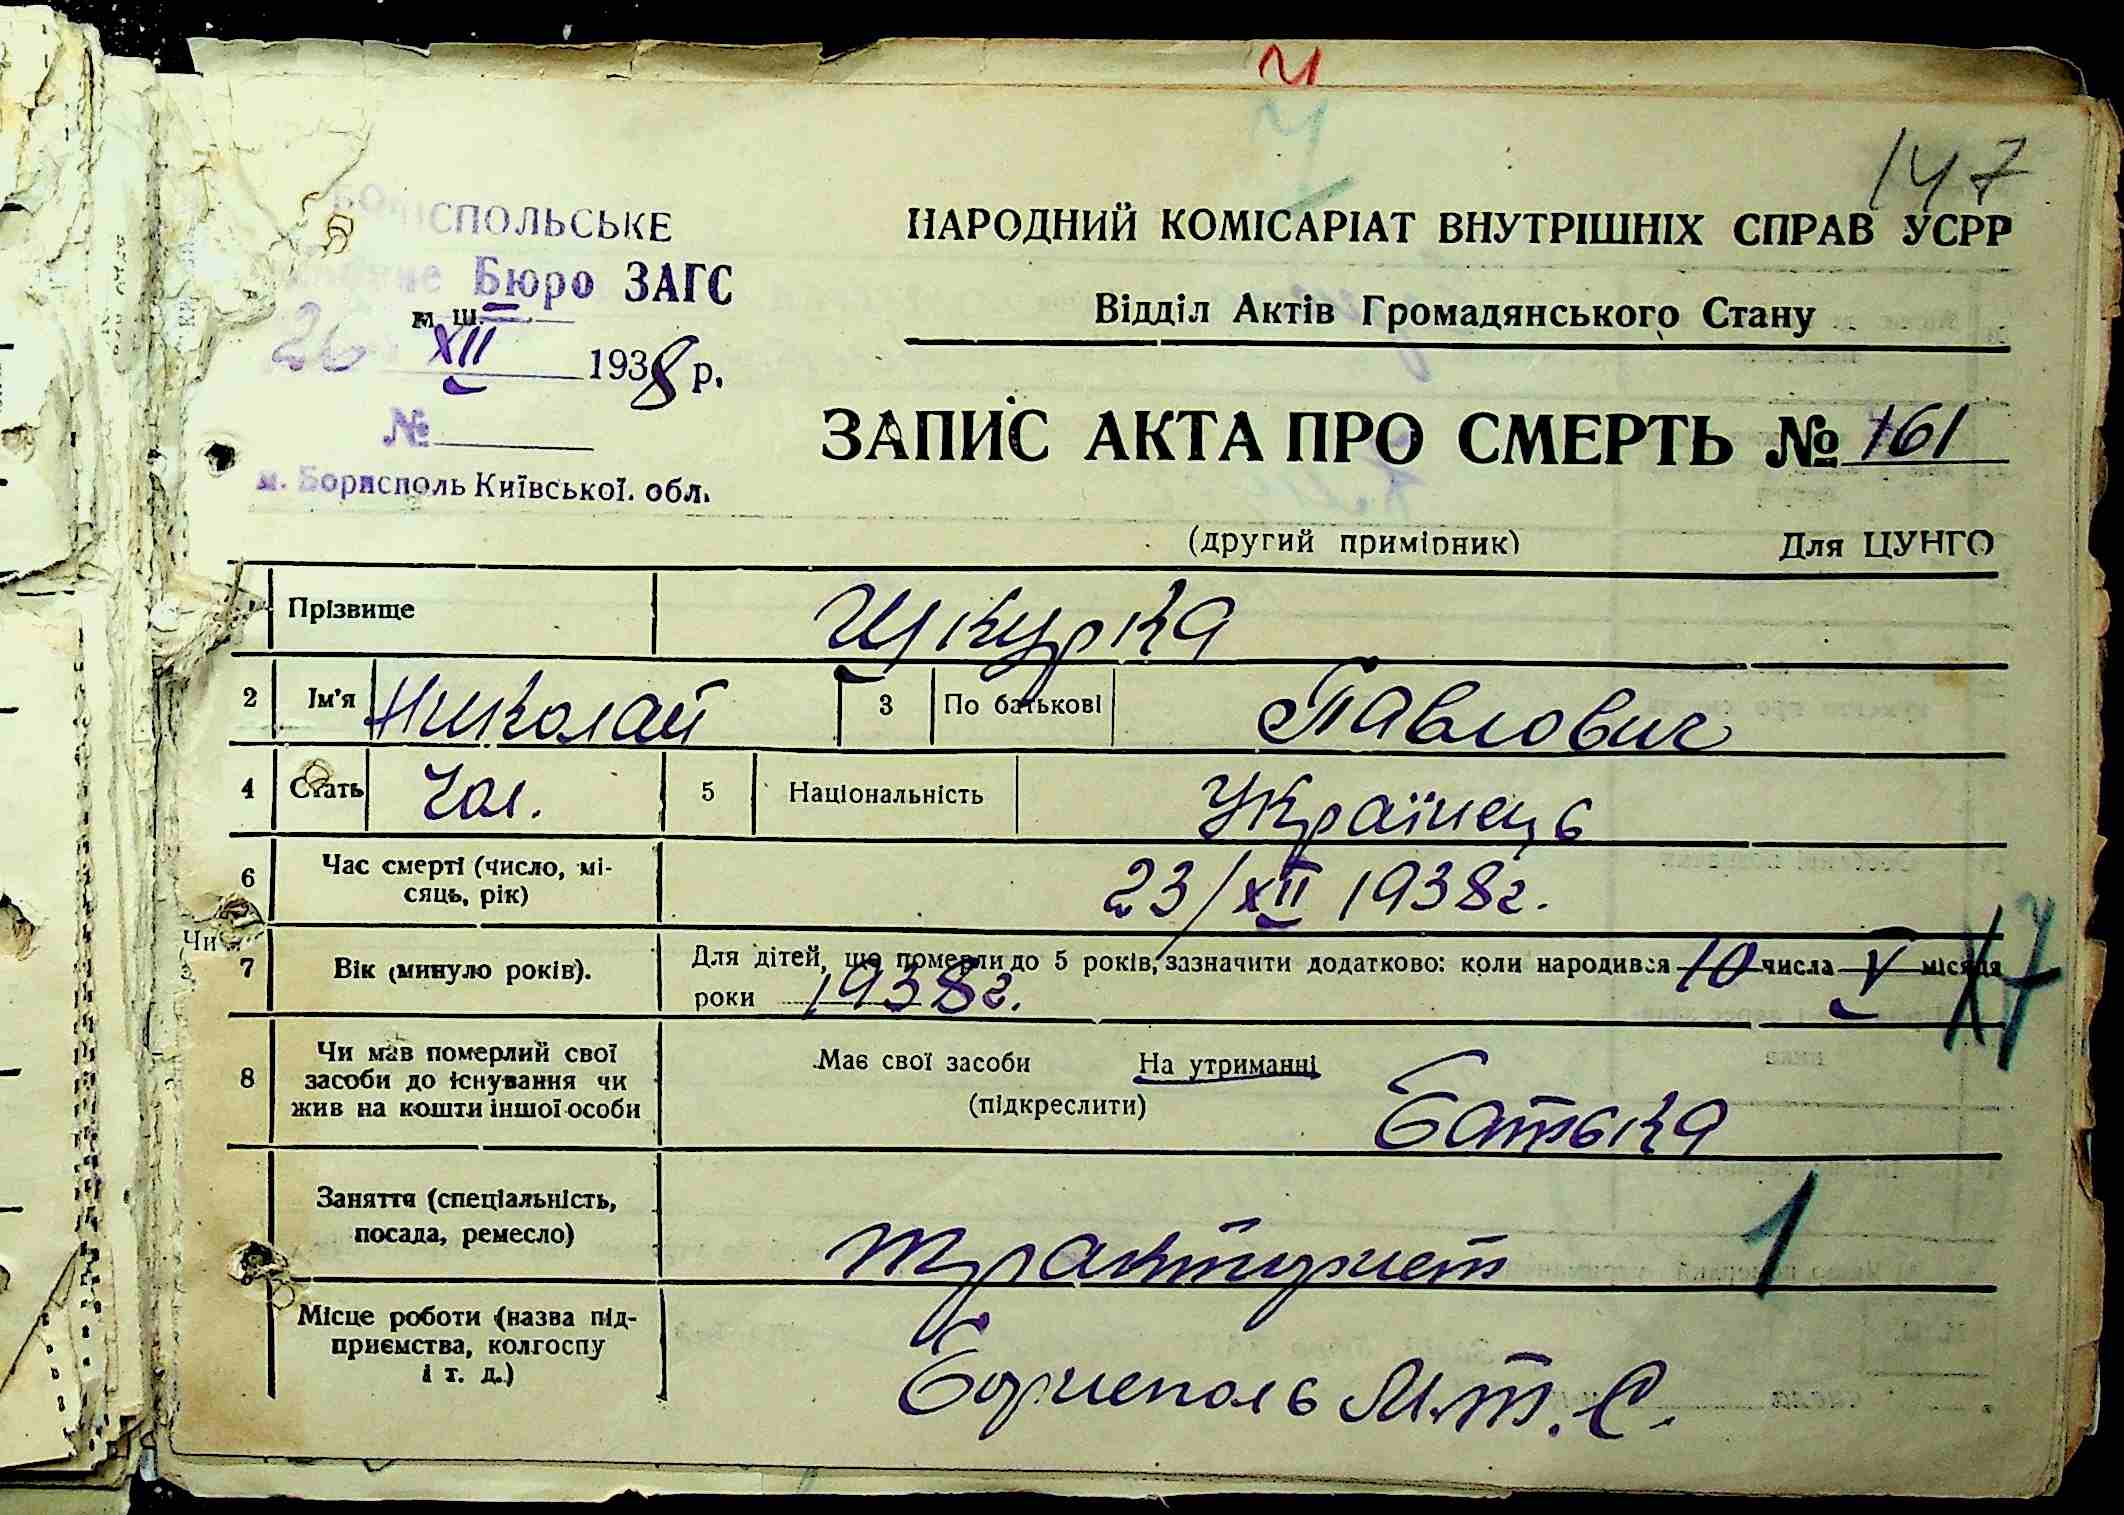 Ч
Ч
147
БОРИСПОЛЬСЬКЕ
НАРОДНИЙ КОМІСАРІАТ ВНУТРІШНІХ СПРАВ УСРР
Бюро ЗАГС
Відділ Актів Громадянського Стану
26 XII 1938 р.
№
ЗАПИС АКТА ПРО СМЕРТЬ № 161
м. Борисполь Київської. обл.
(другий примірник) Для ЦУНГО
Прізвище Шкурка
2 Ім'я Николай 3 По батькові Павлович
4 Стать Чол. 5 Національність Українець
6 Час смерті (число, мі-
сяць, рік) 23/XII 1938г.
7 Вік (минуло років). Для дітей, що померли до 5 років, зазначити додатково: коли народився 10 числа V місяця
роки 1938г.
17
8 Чи мав померлий свої
засоби до існування чи
жив на кошти іншої особи
Має свої засоби На утриманні
(підкреслити) батька
Заняття (спеціальність,
посада, ремесло) тракторист 1
Місце роботи (назва під-
приємства, колгоспу
і т. д.) Борисполь М.Т.С.